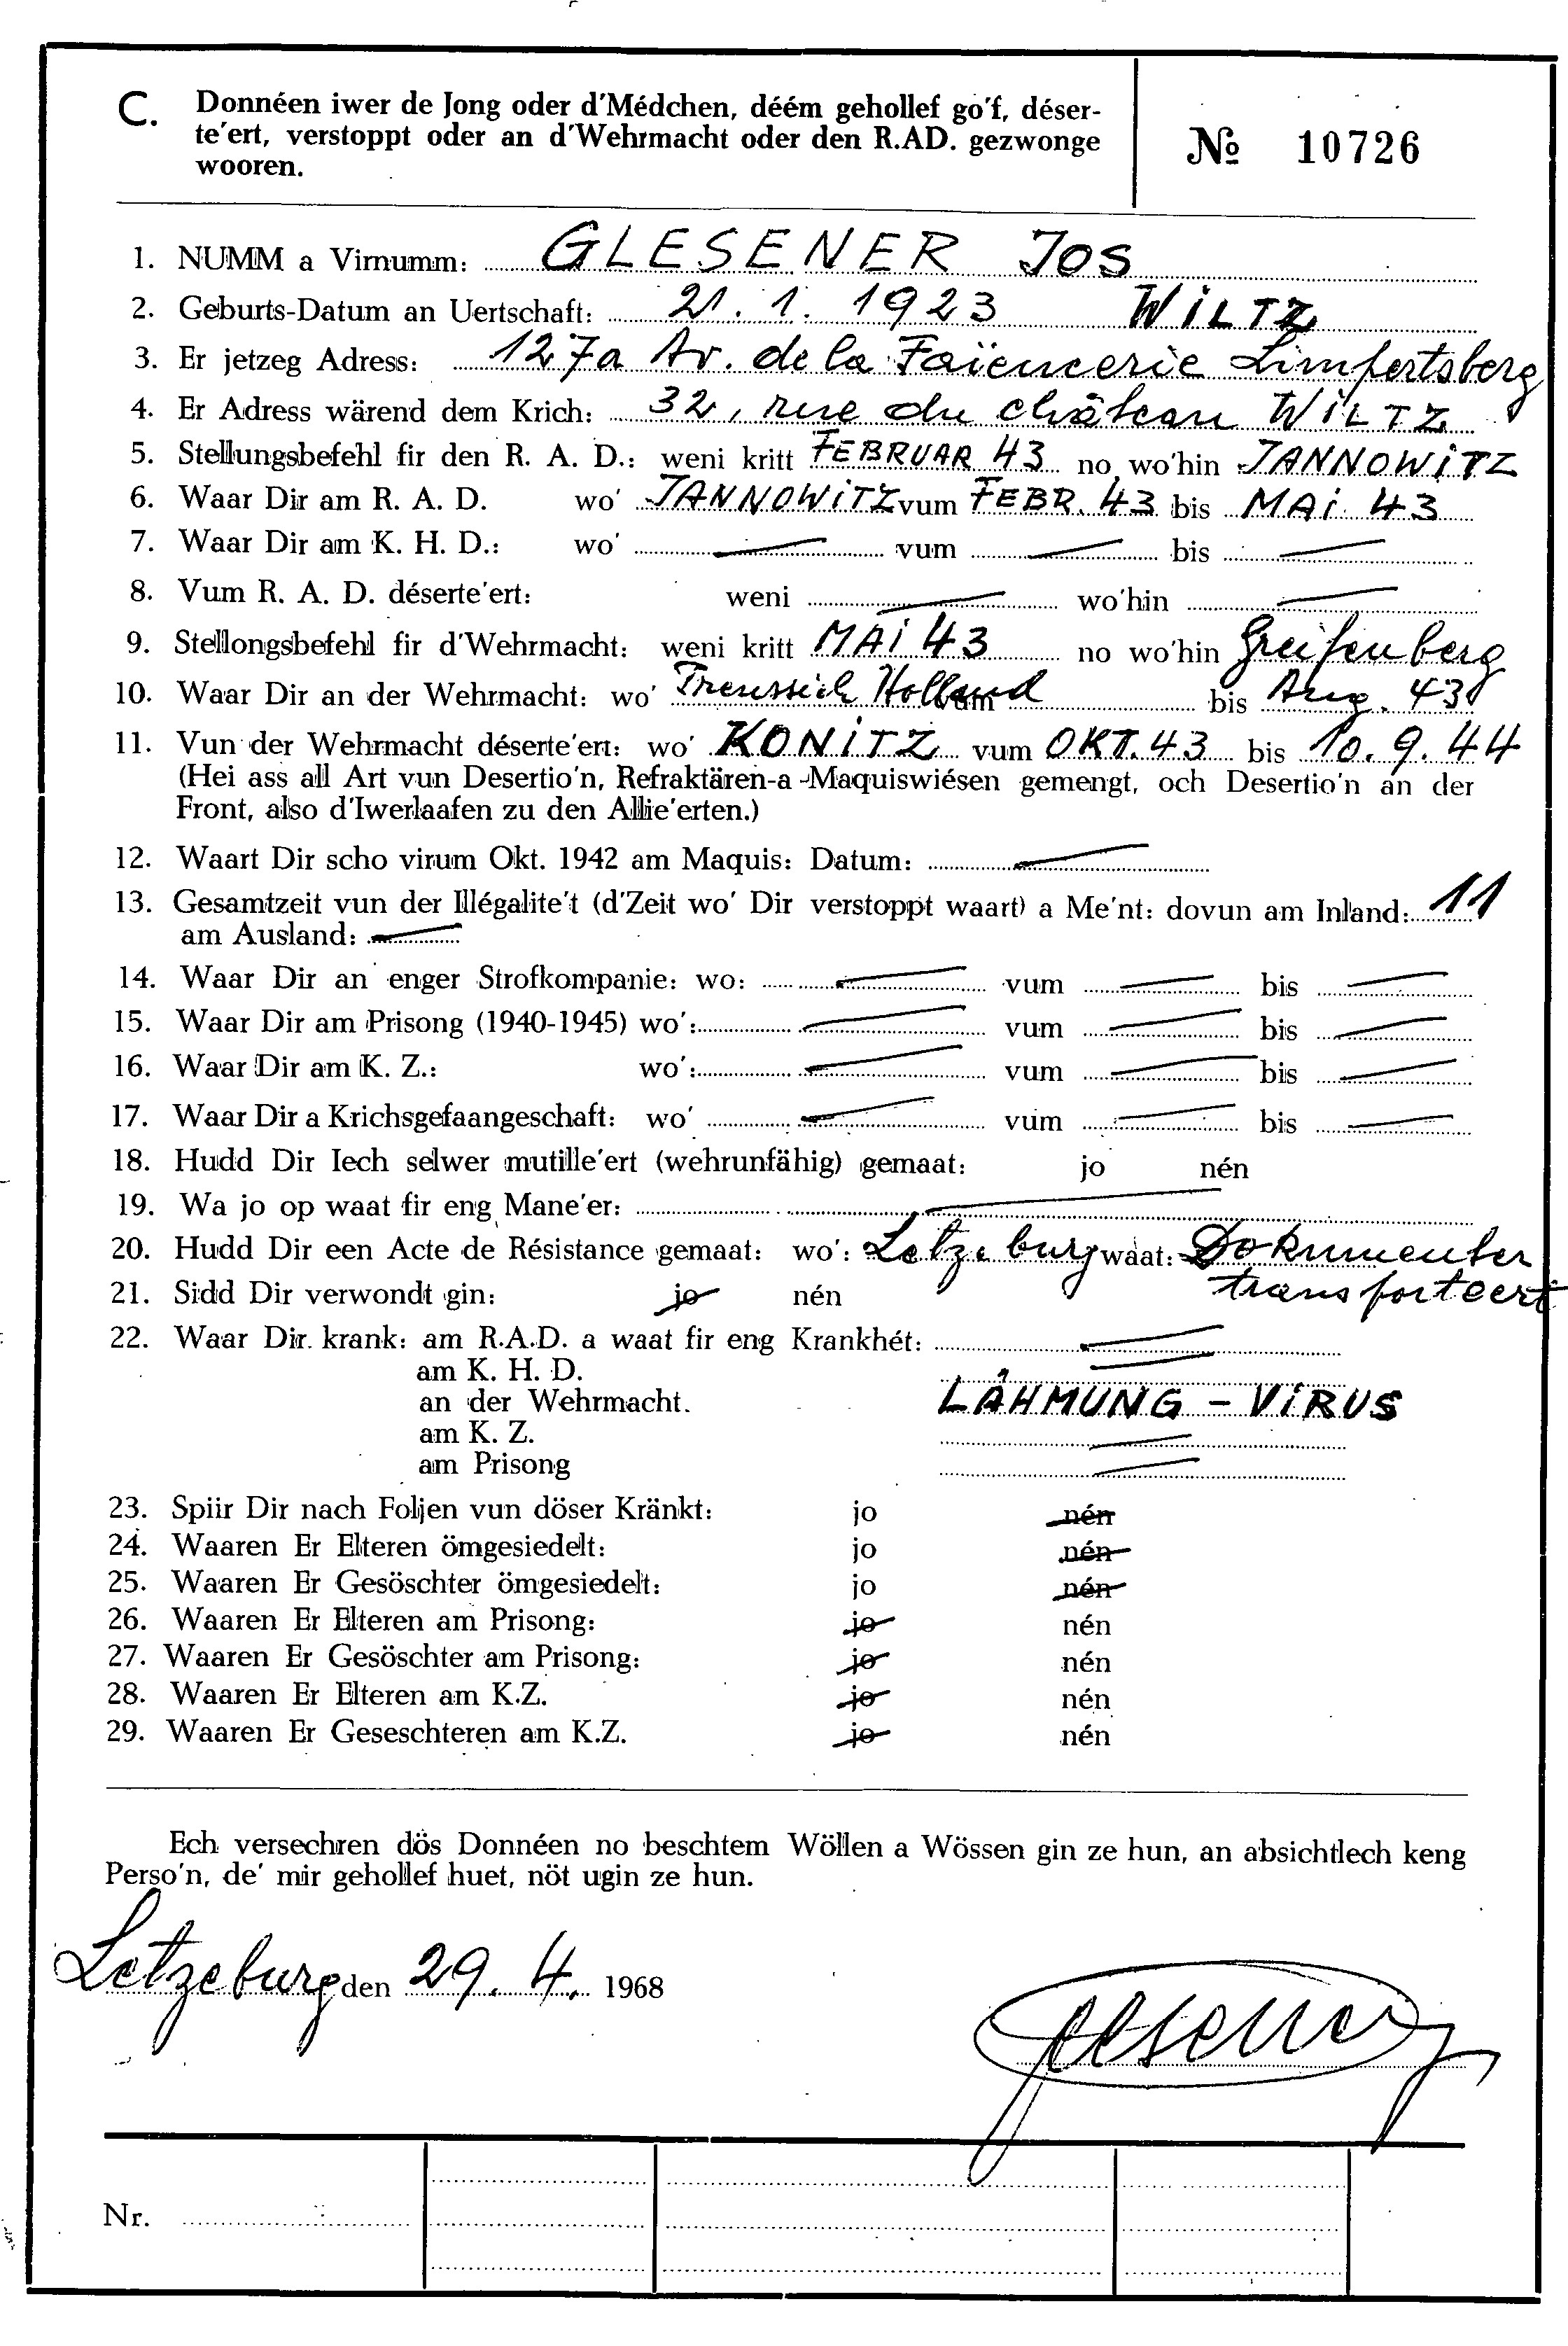 C. Donnéen iwer de Jong oder d'Médchen, déém gehollef go'f, déser-
te'ert, verstoppt oder an d'Wehrmacht oder den R.AD. gezwonge
wooren.
№ 10726
1. NUMM a Virnumm: GLESENER JOS
2. Geburts-Datum an Uertschaft: 21. 1. 1923 WILTZ
3. Er jetzeg Adress: 127a Av. de la Faïencerie Limpertsberg
4. Er Adress wärend dem Krich: 32, rue du château WILTZ
5. Stellungsbefehl fir den R. A. D.: weni kritt FEBRUAR 43 no wo'hin JANNOWITZ
6. Waar Dir am R. A. D. wo' JANNOWITZ vum FEBR. 43 bis MAI 43
7. Waar Dir am K. H. D.: wo' — vum — bis —
8. Vum R. A. D. déserte'ert: weni — wo'hin —
9. Stellongsbefehl fir d'Wehrmacht: weni kritt MAI 43 no wo'hin Greifenberg
10. Waar Dir an der Wehrmacht: wo' Preussich Holland vum bis Aug. 43
11. Vun der Wehrmacht déserte'ert: wo' KONITZ vum OKT. 43 bis 10. 9. 44
(Hei ass all Art vun Desertio'n, Refraktären-a -Maquiswiésen gemengt, och Desertio'n an der
Front, also d'Iwerlaafen zu den Allie'erten.)
12. Waart Dir scho virum Okt. 1942 am Maquis: Datum: —
13. Gesamtzeit vun der Illégalite't (d'Zeit wo' Dir verstoppt waart) a Me'nt: dovun am Inland: 11
am Ausland: —
14. Waar Dir an enger Strofkompanie: wo: — vum — bis —
15. Waar Dir am Prisong (1940-1945) wo': — vum — bis —
16. Waar Dir am K. Z.: wo': — vum — bis —
17. Waar Dir a Krichsgefaangeschaft: wo' — vum — bis —
18. Hudd Dir Iech selwer mutille'ert (wehrunfähig) gemaat: jo nén
19. Wa jo op waat fir eng Mane'er: —
20. Hudd Dir een Acte de Résistance gemaat: wo': Letzeburg waat: Dokumenter
transporteert
21. Sidd Dir verwondt gin: jo nén
22. Waar Dir. krank: am R.A.D. a waat fir eng Krankhét: —
am K. H. D. —
an der Wehrmacht. LÄHMUNG - VIRUS
am K. Z. —
am Prisong —
23. Spiir Dir nach Foljen vun döser Kränkt: jo nén
24. Waaren Er Elteren ömgesiedelt: jo nén
25. Waaren Er Gesöschter ömgesiedelt: jo nén
26. Waaren Er Elteren am Prisong: jo nén
27. Waaren Er Gesöschter am Prisong: jo nén
28. Waaren Er Elteren am K.Z. jo nén
29. Waaren Er Geseschteren am K.Z. jo nén
Ech versechren dös Donnéen no beschtem Wöllen a Wössen gin ze hun, an absichtlech keng
Perso'n, de' mir gehollef huet, nöt ugin ze hun.
Letzeburg den 29. 4. 1968
Glesener
Nr.